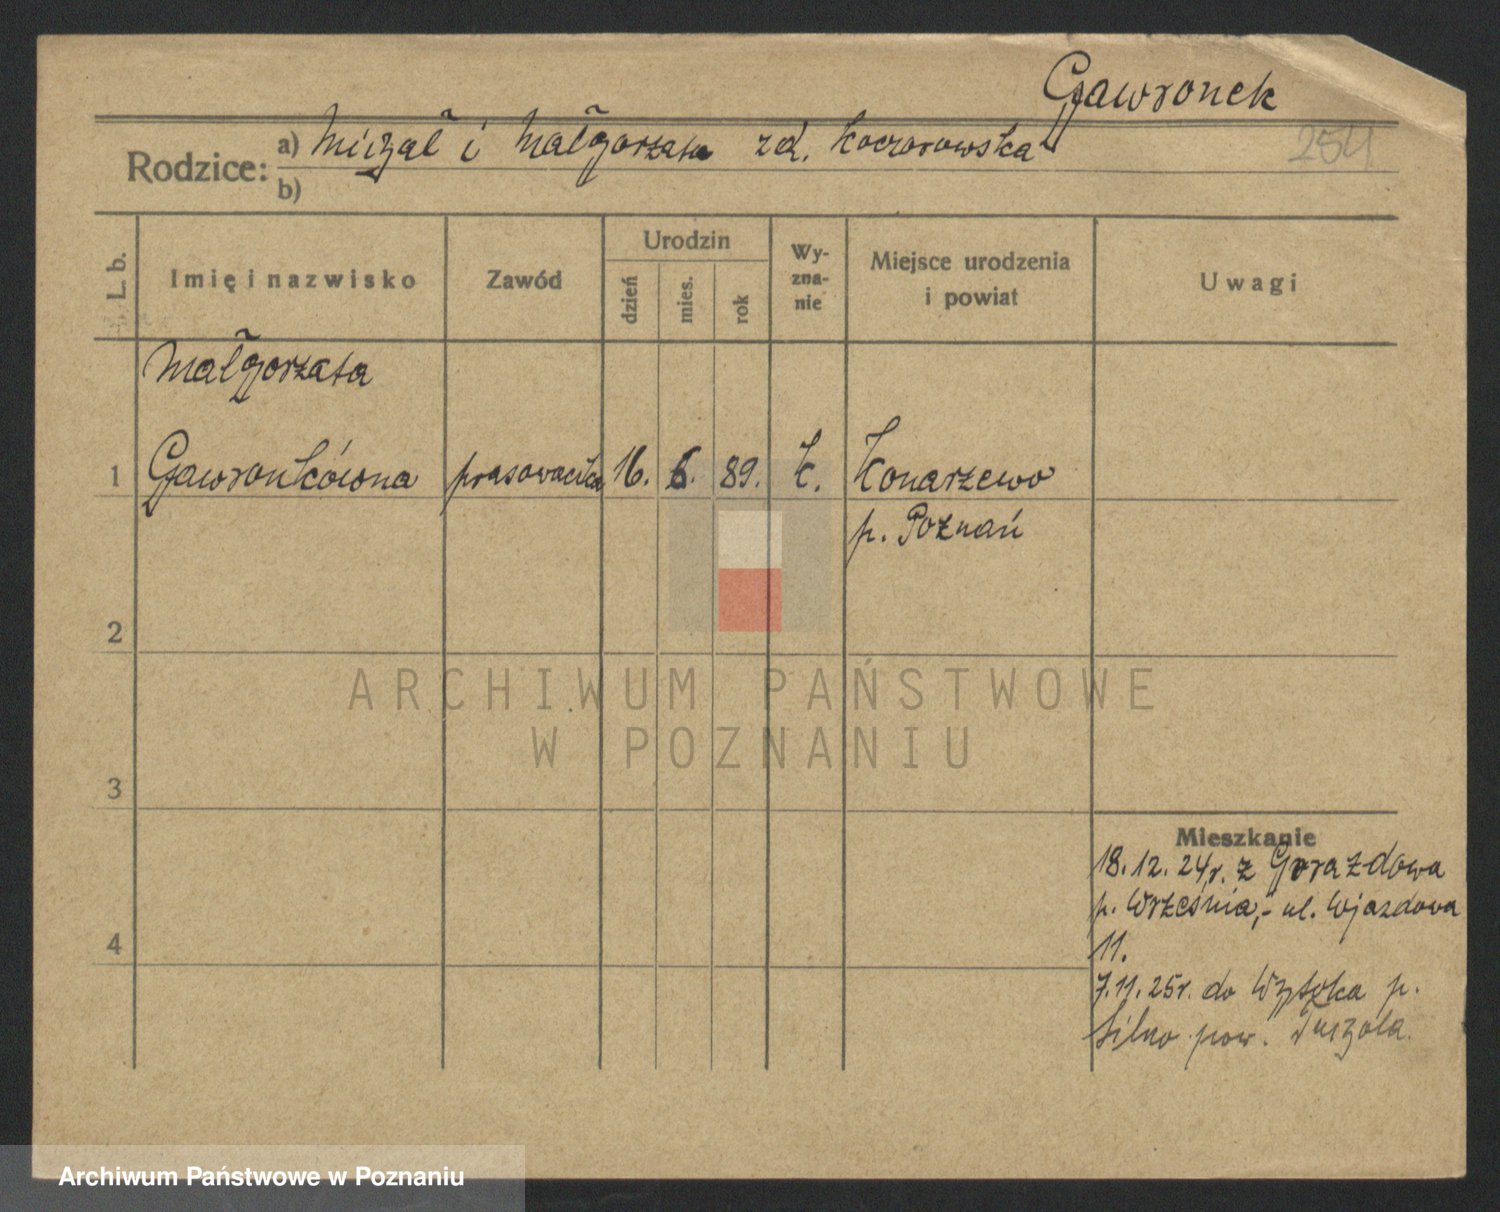 Gawronek
254
Rodzice:
a) Michał i Małgorzata zd. Koczorowska
b)
L. b.
Imię i nazwisko
Zawód
Urodzin
dzień
mies.
rok
Wy-
zna-
nie
Miejsce urodzenia
i powiat
Uwagi
Małgorzata
1 Gawronkówna prasowaczka 16. 6. 89. k. Konarzewo
p. Poznań
2
ARCHIWUM PAŃSTWOWE
W POZNANIU
3
Mieszkanie
18.12.24r. z Gorazdowa
p. Września,- ul. Wjazdowa
4
11.
7.11.25r. do Wysoka p.
Silno pow. Tuchola.
Archiwum Państwowe w Poznaniu